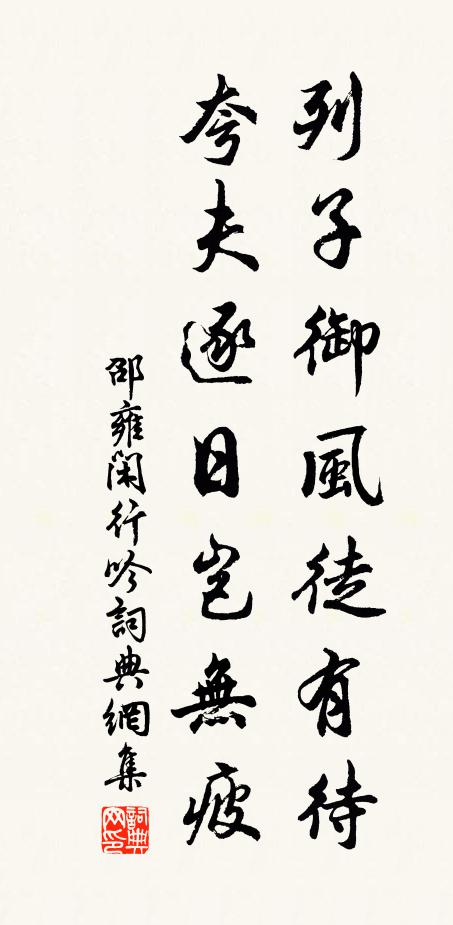 列子御風徒有待
夸夫逐日岂無疲
邵雍閑行吟詞典網集
詞典网印